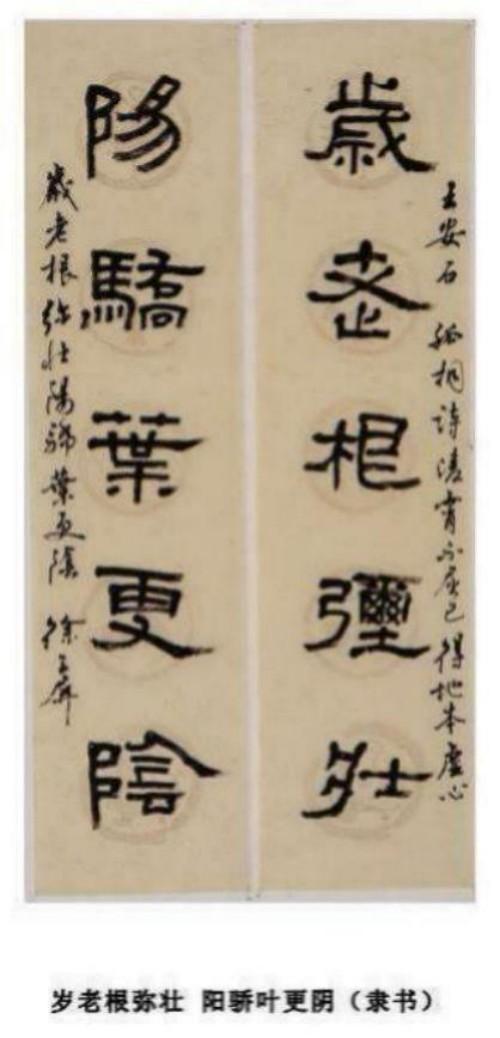 王安石 孤桐詩凌霄不屈己得地本虛心
歲老根彌壯
陽驕葉更陰
歲老根弥壯陽驕葉更陰 徐
岁老根弥壮 阳骄叶更阴（隶书）